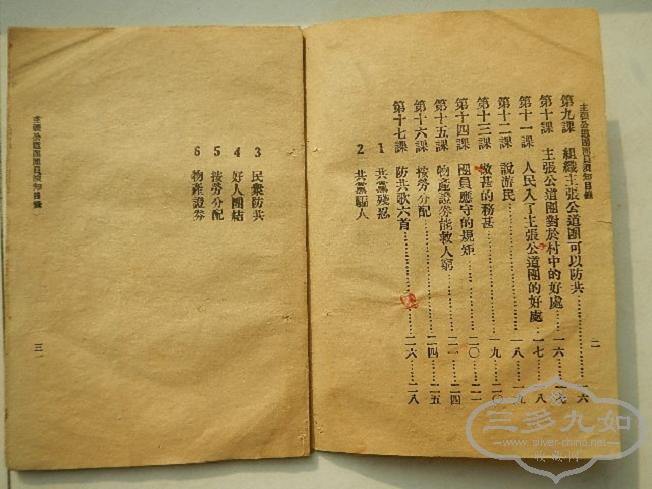 主張公道團團員須知目錄
二
第九課　組織主張公道團可以防共⋯⋯一六
第十課　主張公道團對於村中的好處⋯一六　一七
第十一課　人民入了主張公道團的好處⋯一七　一八
第十二課　說游民⋯⋯一八　一九
第十三課　做甚的務甚⋯⋯一九　二〇
第十四課　團員應守的規矩⋯⋯二〇　二一
第十五課　物產證券能救人窮⋯⋯二一　二四
第十六課　按勞分配⋯⋯二四　二五
第十七課　防共歌六首⋯⋯二六　二八
1　共黨殘忍
2　共黨騙人
3　民衆防共
4　好人團結
5　按勞分配
6　物產證券
主張公道團團員須知目錄
三
三多九如
www.silver-china.net
收藏網